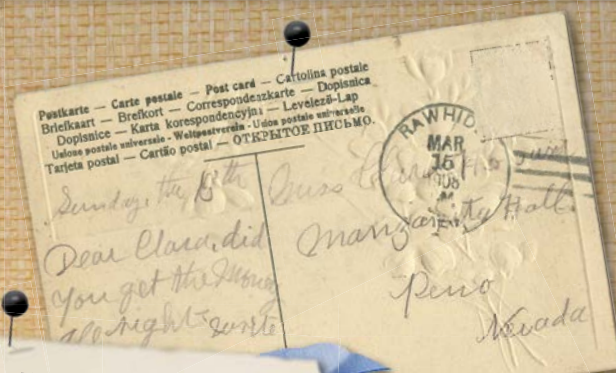 Postkarte — Carte postale — Post card — Cartolina postale
Briefkaart — Brefkort — Correspondenzkarte — Dopisnica
Dopisnice — Karta korespondencyjna — Levelező-Lap
Unione postale universale - Weltpostverein - Union postale universelle
Tarjeta postal — Cartão postal — ОТКРЫТОЕ ПИСЬМО.
RAWHID
MAR
15
1908
Sunday, the 15th
Dear Clara, did
you get the money
all right? write
Miss Clara
Manzanita Hall.
Reno
Nevada